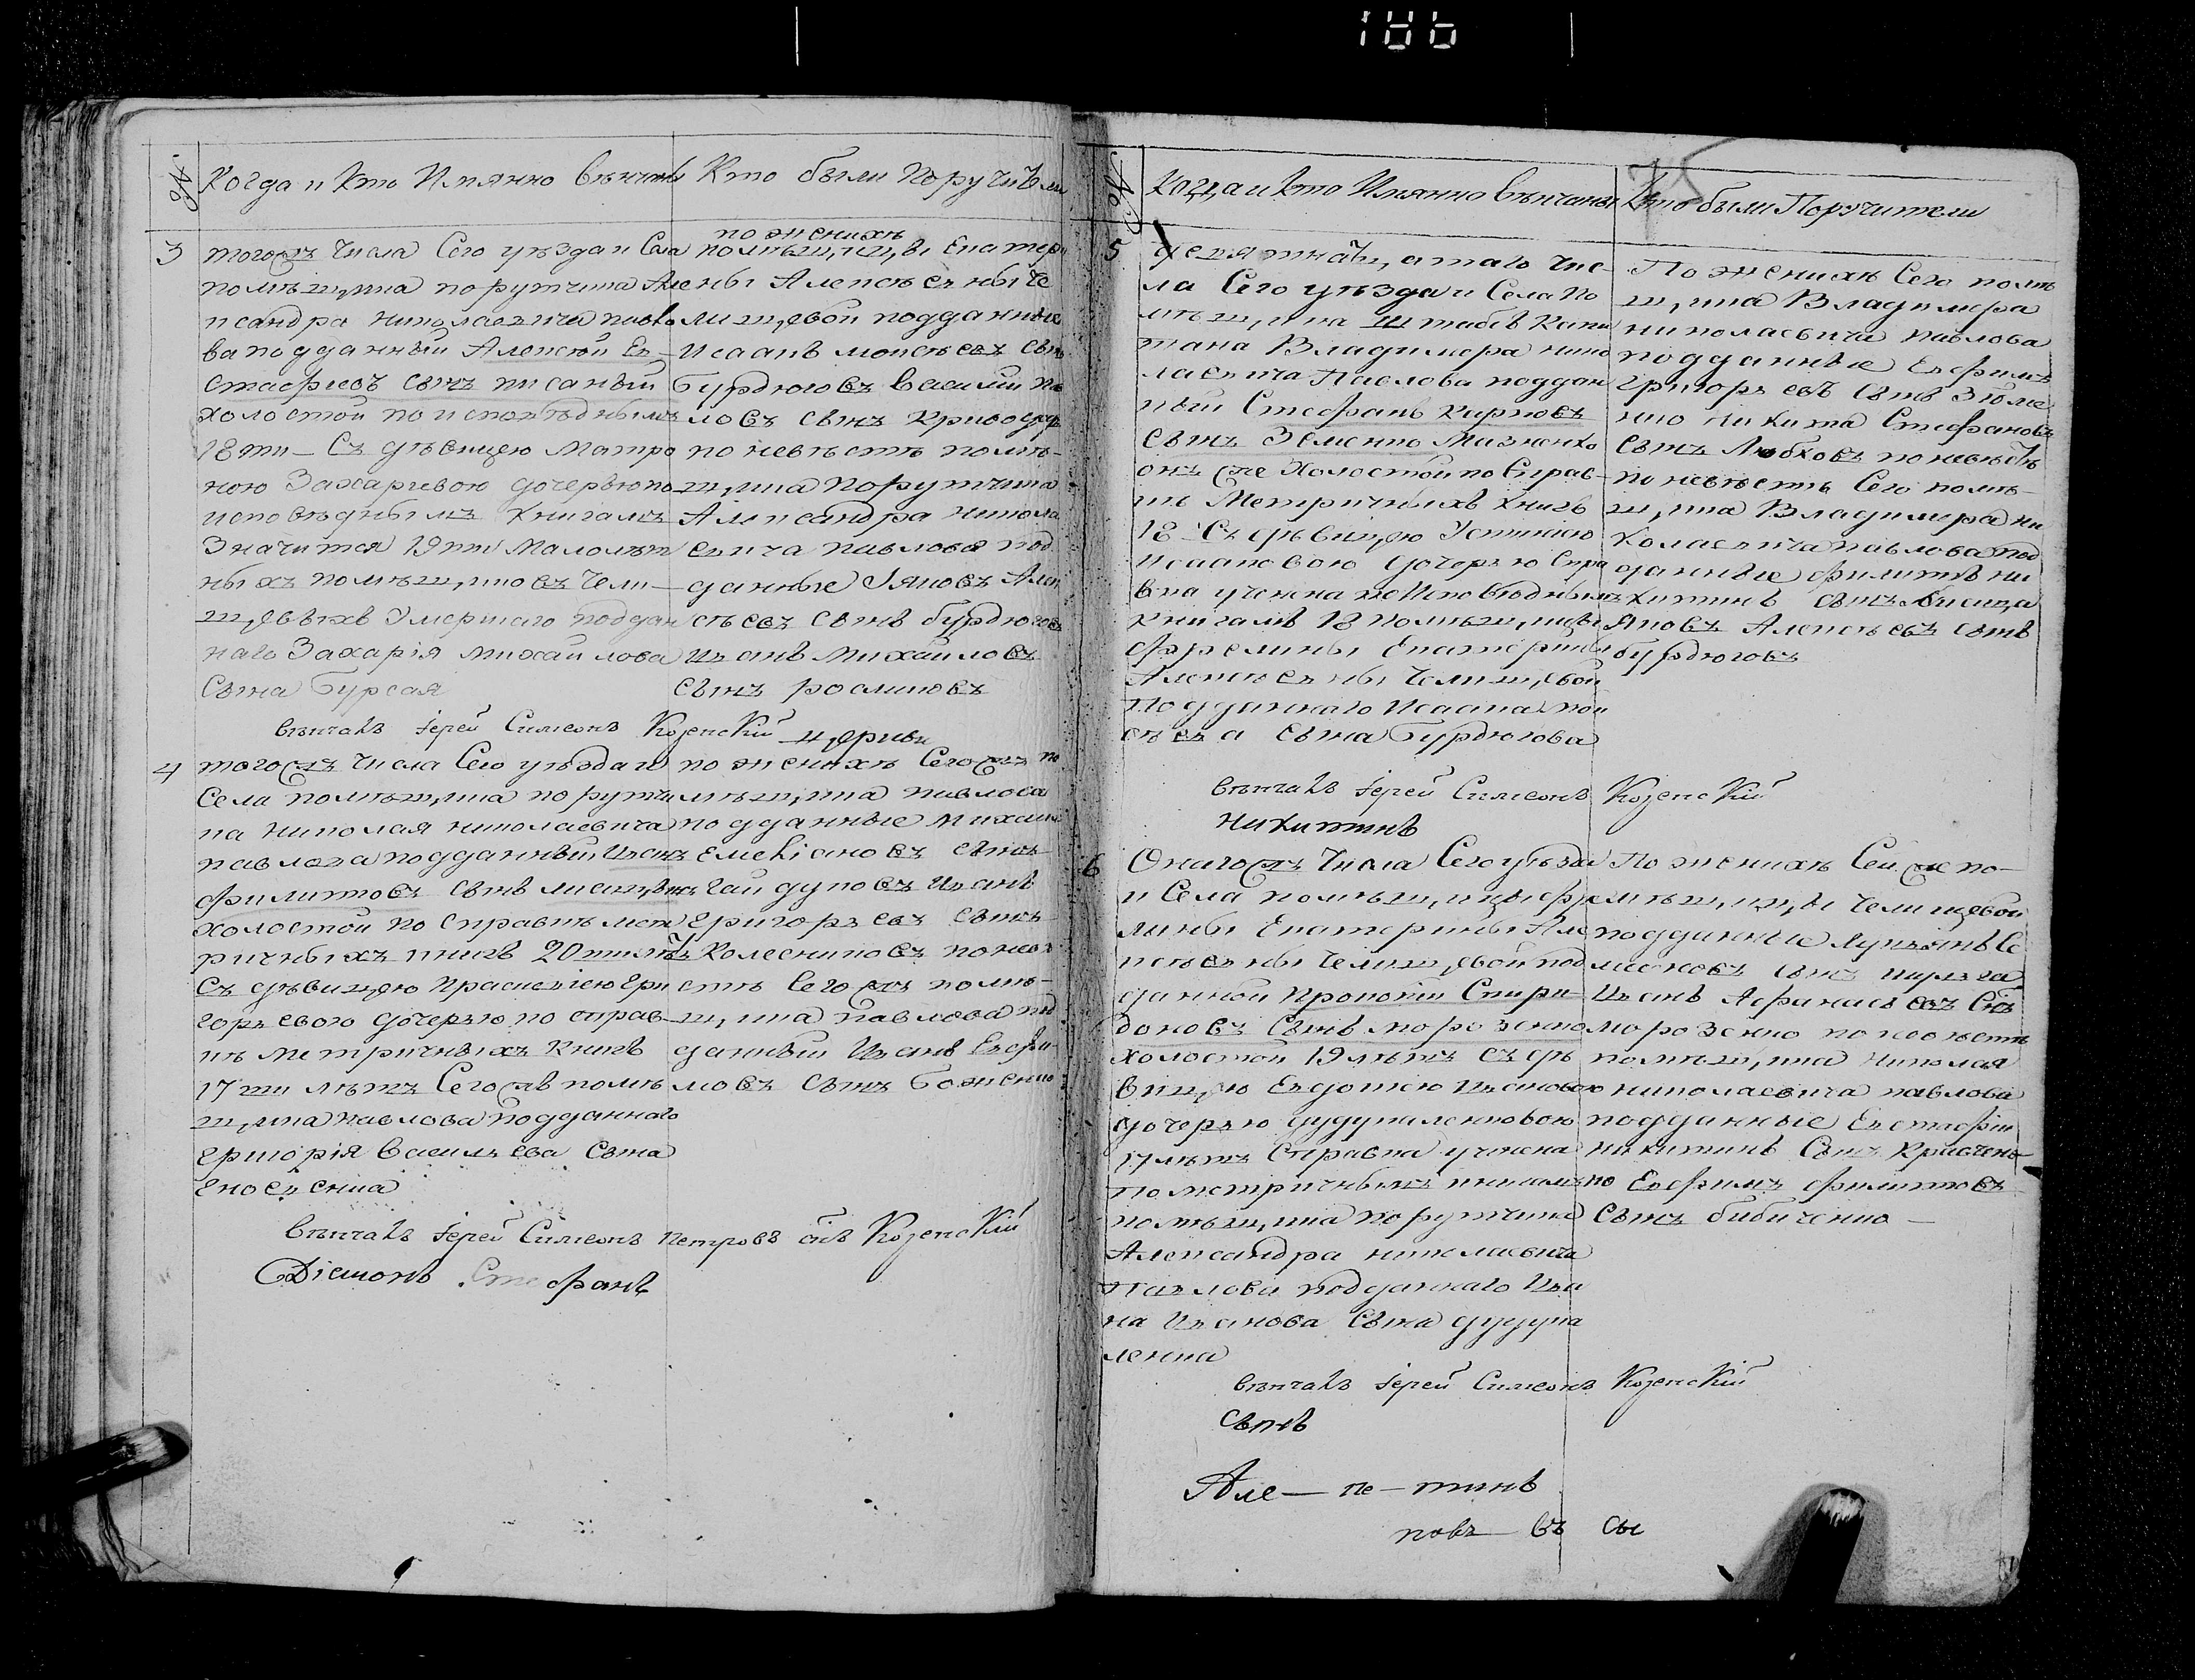 186
№ Когда и Кто Имянно венчаны
Кто были Поручители
3
тогожъ Числа Сего уѣзда и Села
помѣщика порутчика Але
ксандра Николаевича павло
ва подданный Алексѣй Ев
стафиевъ сынъ писаный
холостой по исповѣднымъ
18ти Съ дѣвицею Матро
ною Захариевою дочерью по
исповѣднымъ книгамъ
Значится 19ти Малолѣт
ныхъ помѣщиковъ Чели
щевыхъ Умершаго поддан
наго Захарія михайлова
Сына Бурсая
по женихѣ
помѣщицы Екатери
ны Алексѣевны Че
лищевой подданные
Исаакъ моисѣевъ сынъ
Бурдюговъ Василий
ловъ сынъ
по невѣстѣ помѣ
щика порутчика
Александра Никола
евича павлова под
данные Яковъ Алек
сѣевъ сынъ бурдюговъ
Иванъ Михайловъ
сынъ росликовъ
вѣнчалъ Іерей Симеонъ Козенский
4
тогожъ Числа Сего уѣзда и
Села помѣщика порутчи
ка Николая николаевича
павлова подданный Иванъ
филиповъ сынъ
холостой по справкѣ мет
ричныхъ книгъ 20ти лѣтъ
Съ дѣвицею Праскевіею Гри
горьевою дочерью по справ
кѣ метричныхъ Книгъ
17ти лѣтъ Сегожъ помѣ
щика павлова подданнаго
Григорія Васильева Сына
Еносенка
по женихѣ Сегожъ по
мѣщика павлова
подданные Михаилъ
Емельяновъ сынъ
Гайдуковъ Иванъ
Григорьевъ сынъ
Колесниковъ по невѣ
стѣ Сегожъ помѣ
щика Павлова под
данный Иванъ Ефи
мовъ сынъ Боженко
Вѣнчалъ Іерей Симеонъ Петровъ сынъ Козенский
Діемонъ Стефанъ
№ Когда и Кто Имянно вѣнчаны
Кто были Поручители
5
девятнатцатаго Чис
ла Сего уѣзда и Села По
мѣщика штабъ Капи
тана Владимера нико
лаевича Павлова поддан
ный Стефанъ Карповъ
сынъ Земенко Мазненко
онъ же Холостой по Справ
кѣ Метричныхъ Книгъ
18 Съ дѣвицею Устиніею
Исааковою дочерью Спра
вка учинена по Исповѣднымъ
Книгамъ 18 помѣщицы
фрелины Екатерины
Алексѣевны Челищевой
Подданнаго Исаака мои
сѣева сына Бурдюгова
По женихѣ Сего помѣ
щика Владимера
николаевича павлова
подданные Ефимъ
Григорьевъ сынъ
Никита Стефановъ
сынъ Любховъ по невѣстѣ
по невѣстѣ Сего помѣ
щика Владимера ни
колаевича павлова под
данные филипъ ни
китинъ сынъ Лисица
Яковъ Алексѣевъ сынъ
бурдюговъ
вѣнчалъ Іерей Симеонъ Козенский
никитинъ
6
Онагожъ Числа Сего уѣзда
и Села помѣщицы фре
лины Екатерины Але
ксѣевны Челищевой под
данной Прокопій Спири
доновъ сынъ морозенко
холостой 19 лѣтъ съ дѣ
вицею Евдокиею Ивановою
дочерью дудукаленковою
17 лѣтъ Справка учинена
По метричнымъ книгамъ
помѣщика порутчика
Александра николаевича
Павлова подданнаго Ива
на Иванова сына дудука
ленка
По женихѣ Сей же по
мѣщицы Челищевой
подданные Лукьянъ Се
меновъ сынъ
Иванъ Афанасьевъ сынъ
морозенко по невѣстѣ
помѣщика Николая
николаевича павлова
подданные Евстафий
никитинъ сынъ Красчен
ко Ефимъ филиповъ
сынъ бибиченко
вѣнчалъ Іерей Симеонъ Козенский
Сынъ
Але — ке — тинъ
ковъ — въ сы